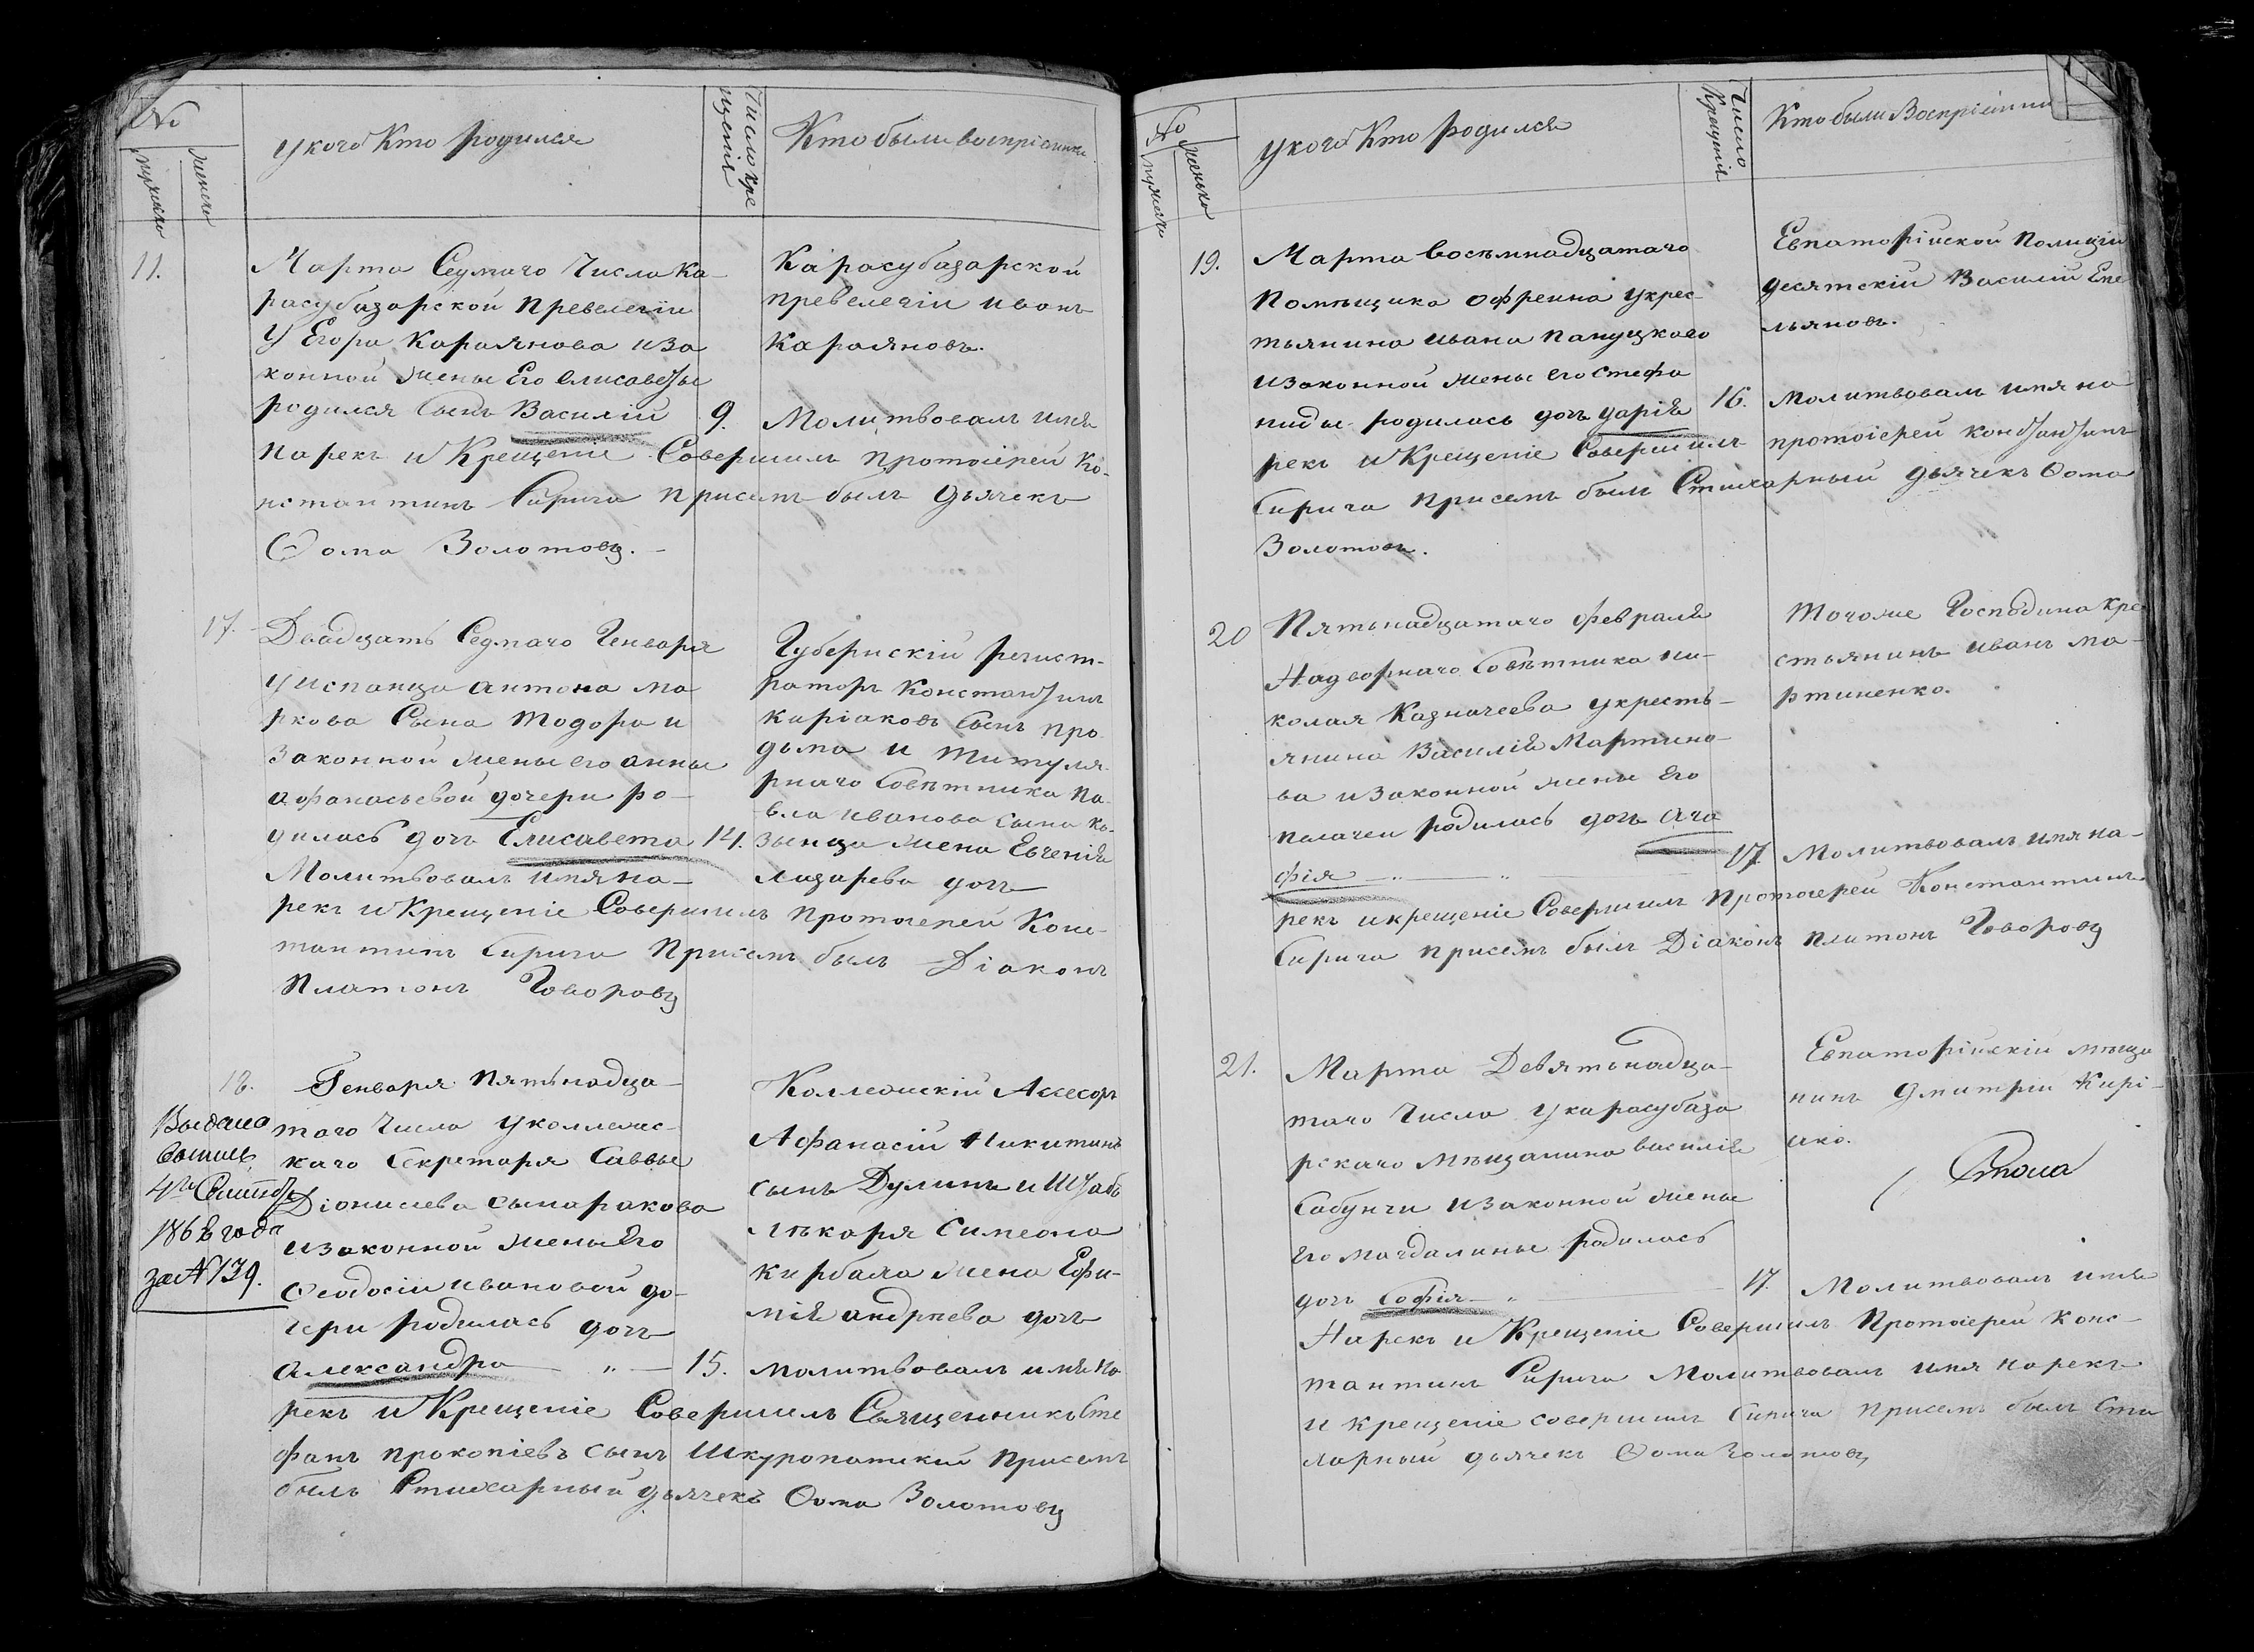 №
мужеска
женска
у кого Кто родился
Число кре
щенія
Кто были воспріемники
11.
Марта Седмаго Числа Ка
расубазарской Превелегіи
У Егора Караянова и за
конной жены Его Елисаветы
родился Сынъ Василій
9.
Нарекъ и Крещеніе Совершилъ Протоіерей Ко-
нстантинъ Сирича при семъ былъ Дьячекъ
Ѳома Золотовъ.
Карасубазарской
превелегіи иванъ
Караяновъ.
Молитвовалъ имя
17.
Двадцать Седмаго Генваря
у испанца антона ма
ркова Сына Тодора и
Законной жены его анны
афанасьевой дочери ро-
дилась дочь Елисавета
14.
Молитвовалъ имя на-
рекъ и Крещеніе Совершилъ Протоіерей Конс-
тантинъ Сирича При семъ былъ Діаконъ
Платонъ Говоровъ
Губернскій регист-
раторъ Константинъ
Киріаковъ Сынъ про
дома и титуля-
рнаго Совѣтника Па-
вла иванова сына
жена Евгенія
Лазарева дочь
18.
Генваря пятьнадца-
таго Числа у коллежс-
каго Секретаря Саввы
Діонисіева сына ракова
и законной жены Его
Ѳеодосіи ивановой до-
чери родилась дочь
александра
15.
рекъ и Крещеніе Совершилъ Священникъ Сте
фанъ прокопіевъ сынъ Шкуропатикій при семъ
былъ Стихарный дьячекъ Ѳома Золотовъ
Выдано
4го
186 года
за №139.
Коллежскій Ассесоръ
Афанасій Никитинъ
сынъ Дулинъ и Штабъ
лѣкаря Симеона
кирбала жена Ефи-
мія андрѣева дочь
молитвовалъ имя на
№
мужеска
женска
у кого Кто родился
Число
Крещенія
Кто были Воспріемни
19.
Марта Восемнадцатаго
Помѣщика офреина у крес-
тьянина ивана Пануцкого
и законной жены его Стефа
ниды родилась дочь дарія
16.
рекъ и Крещеніе Совершилъ протоіерей константинъ
Сирича при семъ былъ Стихарный дьячекъ Ѳома
Золотовъ.
Евпаторійской Полиціи
десятскій Василій Еме
льяновъ.
Молитвовалъ имя на
20
Пятьнадцатаго февраля
Надворнаго Совѣтника ни-
колая Казначеева у кресть-
янина Василія Мартино-
ва и законной жены Его
пелагеи родилась дочь ага
фія
17.
рекъ и крещеніе Совершилъ Протоіерей Константинъ
Сирича при семъ былъ Діаконъ Платонъ Говоровъ
Тогоже Господина кре
стьянинъ иванъ ма-
ртиненко.
Молитвовалъ имя на-
21.
Марта Девятьнадца-
таго Числа у карасубаза
рскаго мѣщанина василія
Сабунчи и законной жены
Его магдалины родилась
дочь Софія
17.
Нарекъ и Крещеніе Совершилъ Протоіерей Конс-
тантинъ Сирича Молитвовалъ имя нарекъ
и крещеніе совершилъ Сирича при семъ былъ Сти
харный дьячекъ Ѳома Золотовъ
Евпаторійскій мѣща
нинъ Дмитрій Кирі-
яко.
Молитвовалъ имя